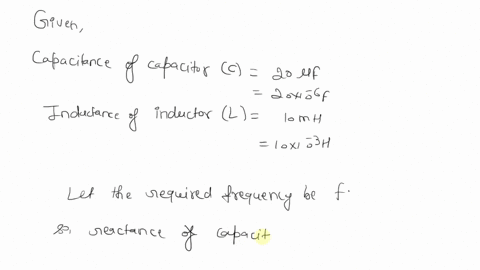 Given,
Capacitance of capacitor (C) = 20 μf
= 20×10⁻⁶f
Inductance of inductor (L) = 10 mH
= 10×10⁻³H
Let the required frequency be f.
So, reactance of capacit